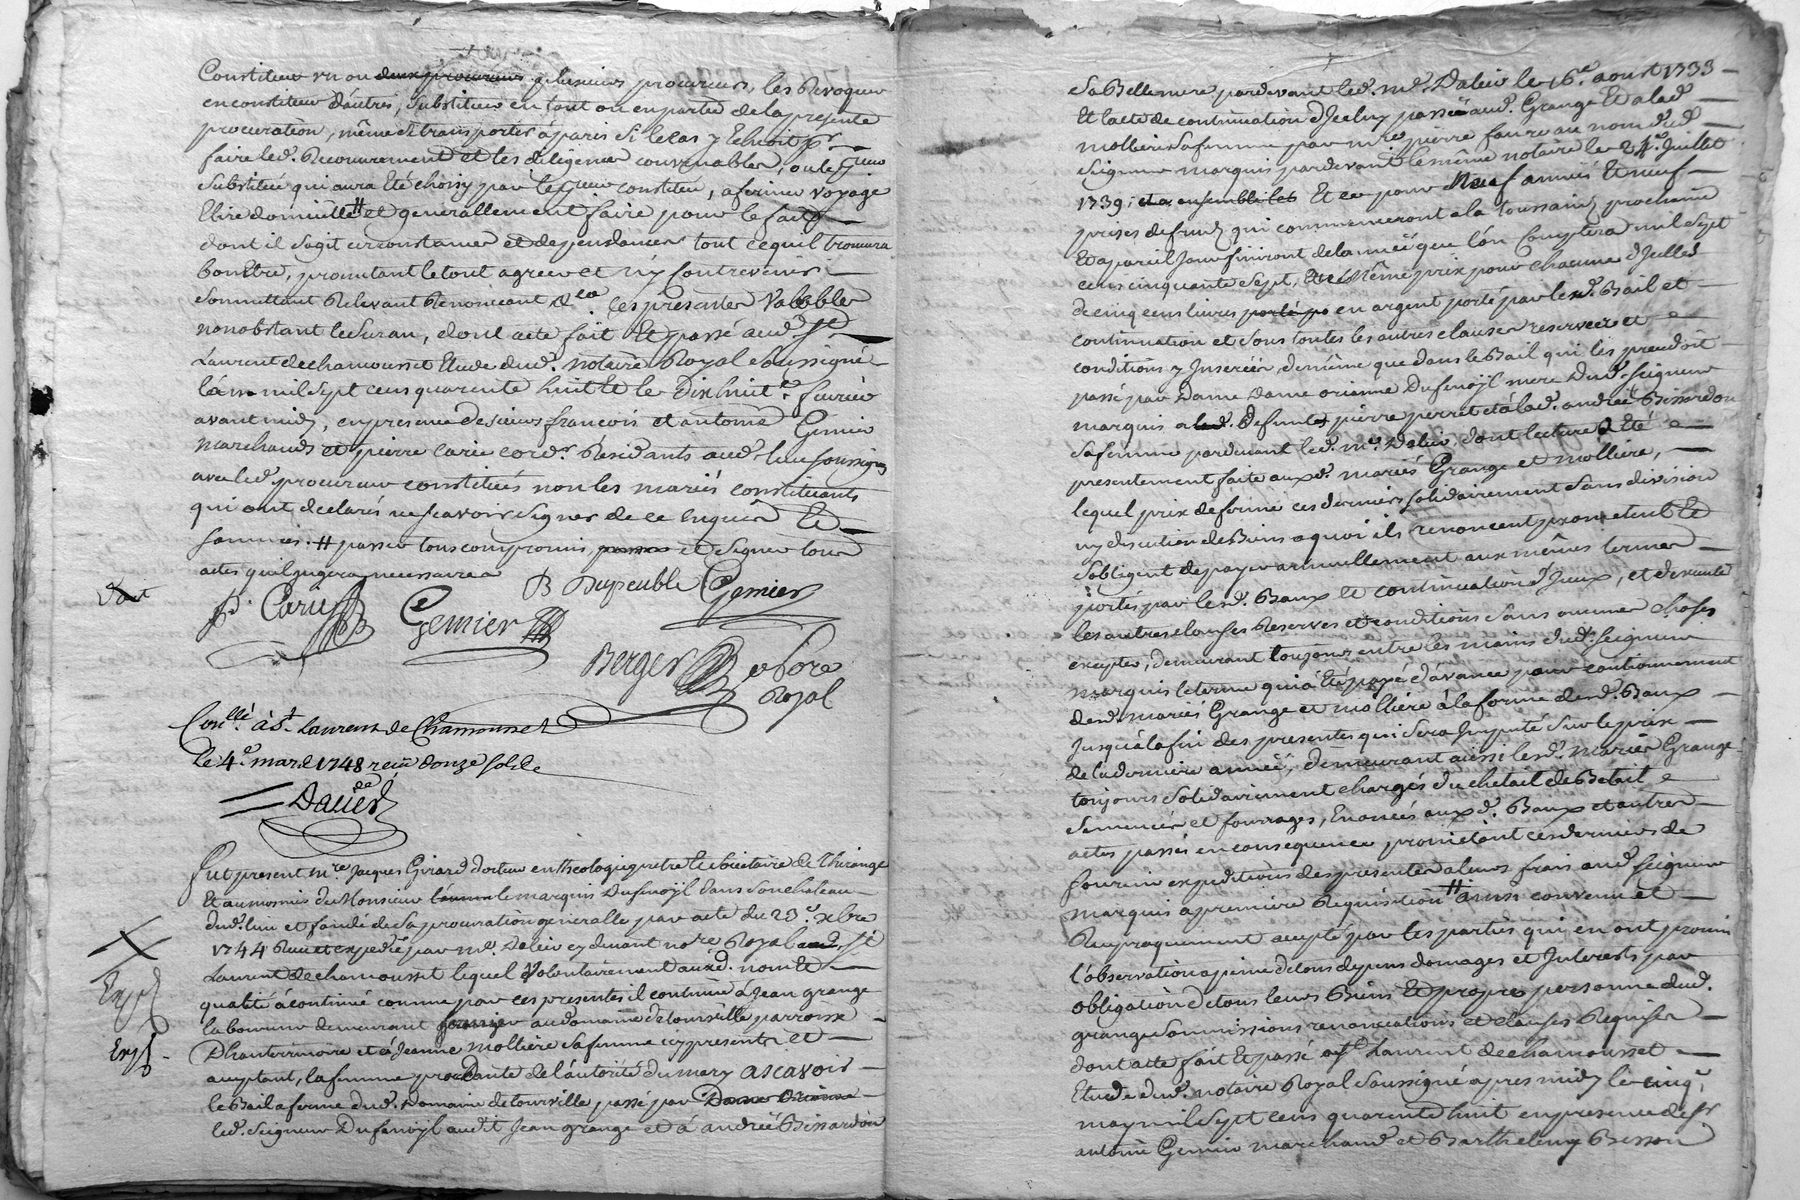 Constituer un ou deux procureurs plusieurs procureurs, les Revoquer
en constituer d'autres, substituer en tout ou en partie de la presente
procuration, même se transporter à paris si le cas y Echoit pr
faire led. Recouvrement et les diligences convenables, ou le
substitué qui aura Eté choisy par le constitué, afirmer voyage
Elire domicille # et generallement faire pour le fait
dont il sagit circonstances et dependances tout ce quil trouvera
bon Etre, promettant le tout agreer et n'y contrevenir
sommettant Relevant Renonceant &ca ces presentes Valables
nonobstant le Suran, dont acte fait Et passé aud. St
Laurent de chamousset Etude dud. notaire Royal soussigné
lan mil sept cens quarente huit Et le Dixhuite fevrier
avant midy, en presence de sieurs francois et antoine Gemier
marchands et pierre carie cordr. Residants aud. lieu soussignés
avec led. procureur constitués non les mariés constituants
qui ont declarés ne scavoir signer de ce Enquis Et
sommés. # passer tous compromis, passer et signer tous
actes quil jugera necessaires
fait
B Dupeuble Gemier
p. Carie Gemier
Berger nore
Royal
Conllé à St. Laurent de Chamousset
Le 4e. mars 1748 reçu douze sols
Daveyd
fut present mre Jacques Girard docteur en theologie pretre Et societaire de Thirange
Et aumonier de Monsieur le marquis Dufenoÿl dans son chateau
dud. lieu et fondé de sa procuration generalle par acte du 23e. xbre
1744 Reçu et expedié par me. Daleir cy devant nore Royal aud. St
Laurent de chamousset lequel Volontairement auxd. nom Et
qualité à continué comme par ces presentes il continue à Jean grange
laboureur demeurant fermier au domaine de tourville parroisse
Dhauterivoire et à Jeanne Molliere sa femme cy presents et
acceptant, la femme procedante de l'autorité du mary ascavoir
le Bail a ferme dud. Domaine de tourville passé par Dame Orianne
led. Seigneur Dufenoÿl aud. Jean grange et à andreé Bissardon
Exp.
Exp.
sa Belle mere pardevant led. me. Daleir le 16e. aoust 1733
Et lacte de continuation d'Jceluy passé aud. Grange Et a lad.
molliere sa femme par mre pierre faure au nom dud.
Seigneur marquis pardevant le même notaire le 24e. Juillet
1739, et ensemble les Et ce pour Neuf années Et neuf
prises de fruits qui commenceront a la toussaint prochaine
Et a pareil Jour finiront de lanneé que l'on Comptera mil sept
cens cinquante sept, Et le Même prix pour chacune d'Jcelles
de cinq cens livres porté po en argent porté par lesd. Bail et
continuation et sous toutes les autres clauses reserves et
conditions y Inserées, de même que dans le Bail qui les precedoit
passé par Dame Dame orianne Dufenoÿl mere Dud. seigneur
marquis aud. Defunt pierre perret et à lad. andreé Bissardon
sa femme pardevant led. me. Daleir, dont lecture a Eté
presentement faite auxd. mariés Grange et molliere,
lequel prix de ferme ces derniers solidairement sans division
ny discution de Biens a quoi ils renoncent promettent Et
s'obligent de payer annuellement aux mêmes termes
portés par lesd. Baux et continuation d'Jceux, et d'executer
les autres clauses Reserves et conditions sans aucunes choses
excepter, demeurant toujours entre les mains dud. seigneur
marquis le terme qui a Eté payé d'avance pour cautionnement
desd. mariés Grange et molliere à la forme desd. Baux
Jusqu'à la fin des presentes qui sera Imputé sur le prix
de la derniere anneé, demeurant aussi lesd. mariés Grange
toujours solidairement chargés du chetail de Bétail
semences et fourrages, Enoncés auxd. Baux et autres
actes passés en consequence promettant ces derniers de
fournir expeditions des presentes a leurs frais aud. Seigneur
marquis a premiere Requisition # ainsi convenu et
Reciproquement accepté par les parties qui en ont promis
l'observation a peine de tous depens domages et Jnterests par
obligation de tous leurs Biens Et propre personne dud.
grange soumissions renonciations et clauses Requises
dont acte fait Et passé a St Laurent de chamousset
Etude dud. notaire Royal soussigné apres midy le cinqe.
may mil sept cens quarente huit en presence de sr
antoine Gemier marchand et Barthelemy Besson